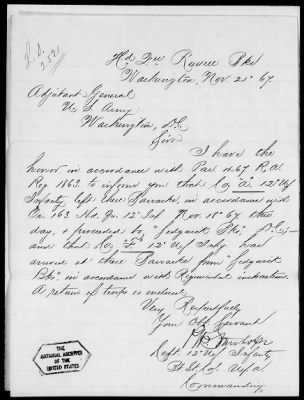 Hd. Qrs. Russell Bks.
Washington, Nov. 21st 67
Adjutant General
U. S. Army
Washington, D.C.
Sir
I have the
honor in accordance with Par 467 R.A.
Reg 1863. to inform you that Co. "A" 12" Inf
Infantry left these Barracks, in accordance with
No. Qr. 12" Inf Nov. 18" 67 this
day, & proceeded to "Sedgwick Bks." D.C.,
and that Co. "F" 12" Infty has
arrived at these Barracks from "Sedgwick
Bks." in accordance with Regimental instructions
A return of troops is enclosed.
Very Respectfully
Your Obt Servant
Capt. 12" Infantry
Commanding
THE
NATIONAL ARCHIVES
OF THE
UNITED STATES